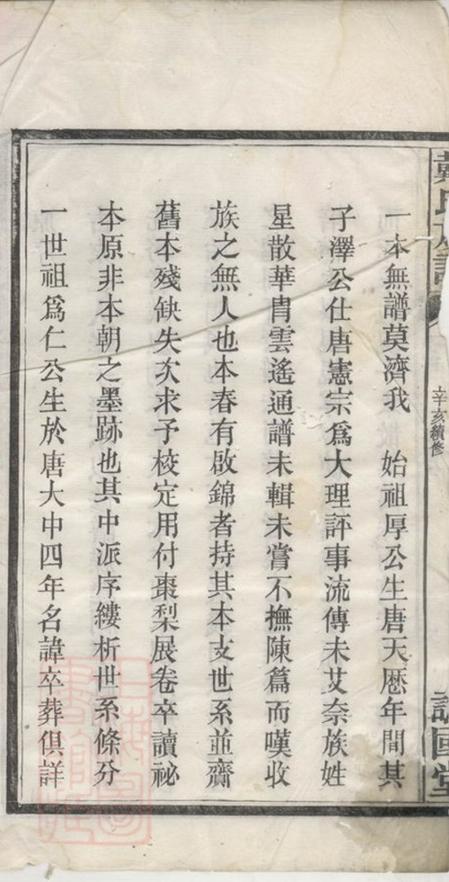 戴氏族譜
辛亥續修
譙國堂
一本無譜莫濟我　始祖厚公生唐天曆年間其
子澤公仕唐憲宗爲大理評事流傳未艾奈族姓
星散華胄雲遙通譜未輯未嘗不撫陳篇而嘆收
族之無人也本春有啟錦者持其本支世系並齎
舊本殘缺失次求予校定用付棗梨展卷卒讀祕
本原非本朝之墨跡也其中派序縷析世系條分
一世祖爲仁公生於唐大中四年名諱卒葬俱詳